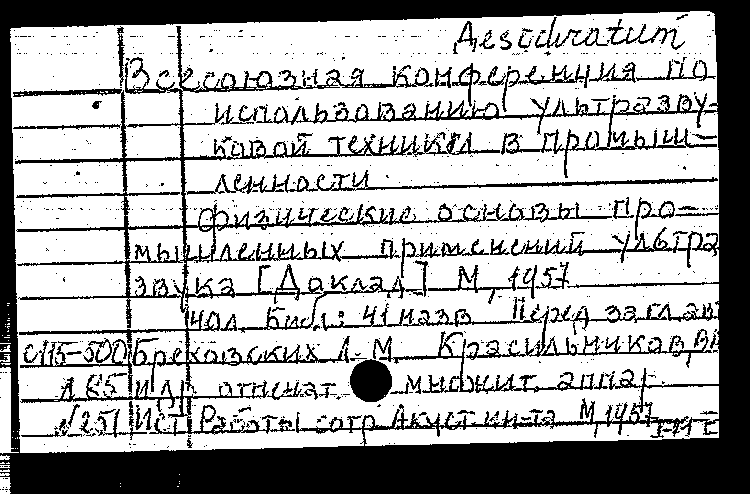 Desideratum
Всесоюзная конференция по
использованию ультразву-
ковой техники в промыш-
ленности.
Физические основы про-
мышленных применений ультра
звука [Доклад] М, 1957
40л. Библ: 41 назв Перед заглав
С115-500 Бреховских Л. М. Красильников, ВА
Л 85 и др отпечат. множит. аппар.
№251 Ист Работы сотр Акуст ин-та М, 1957